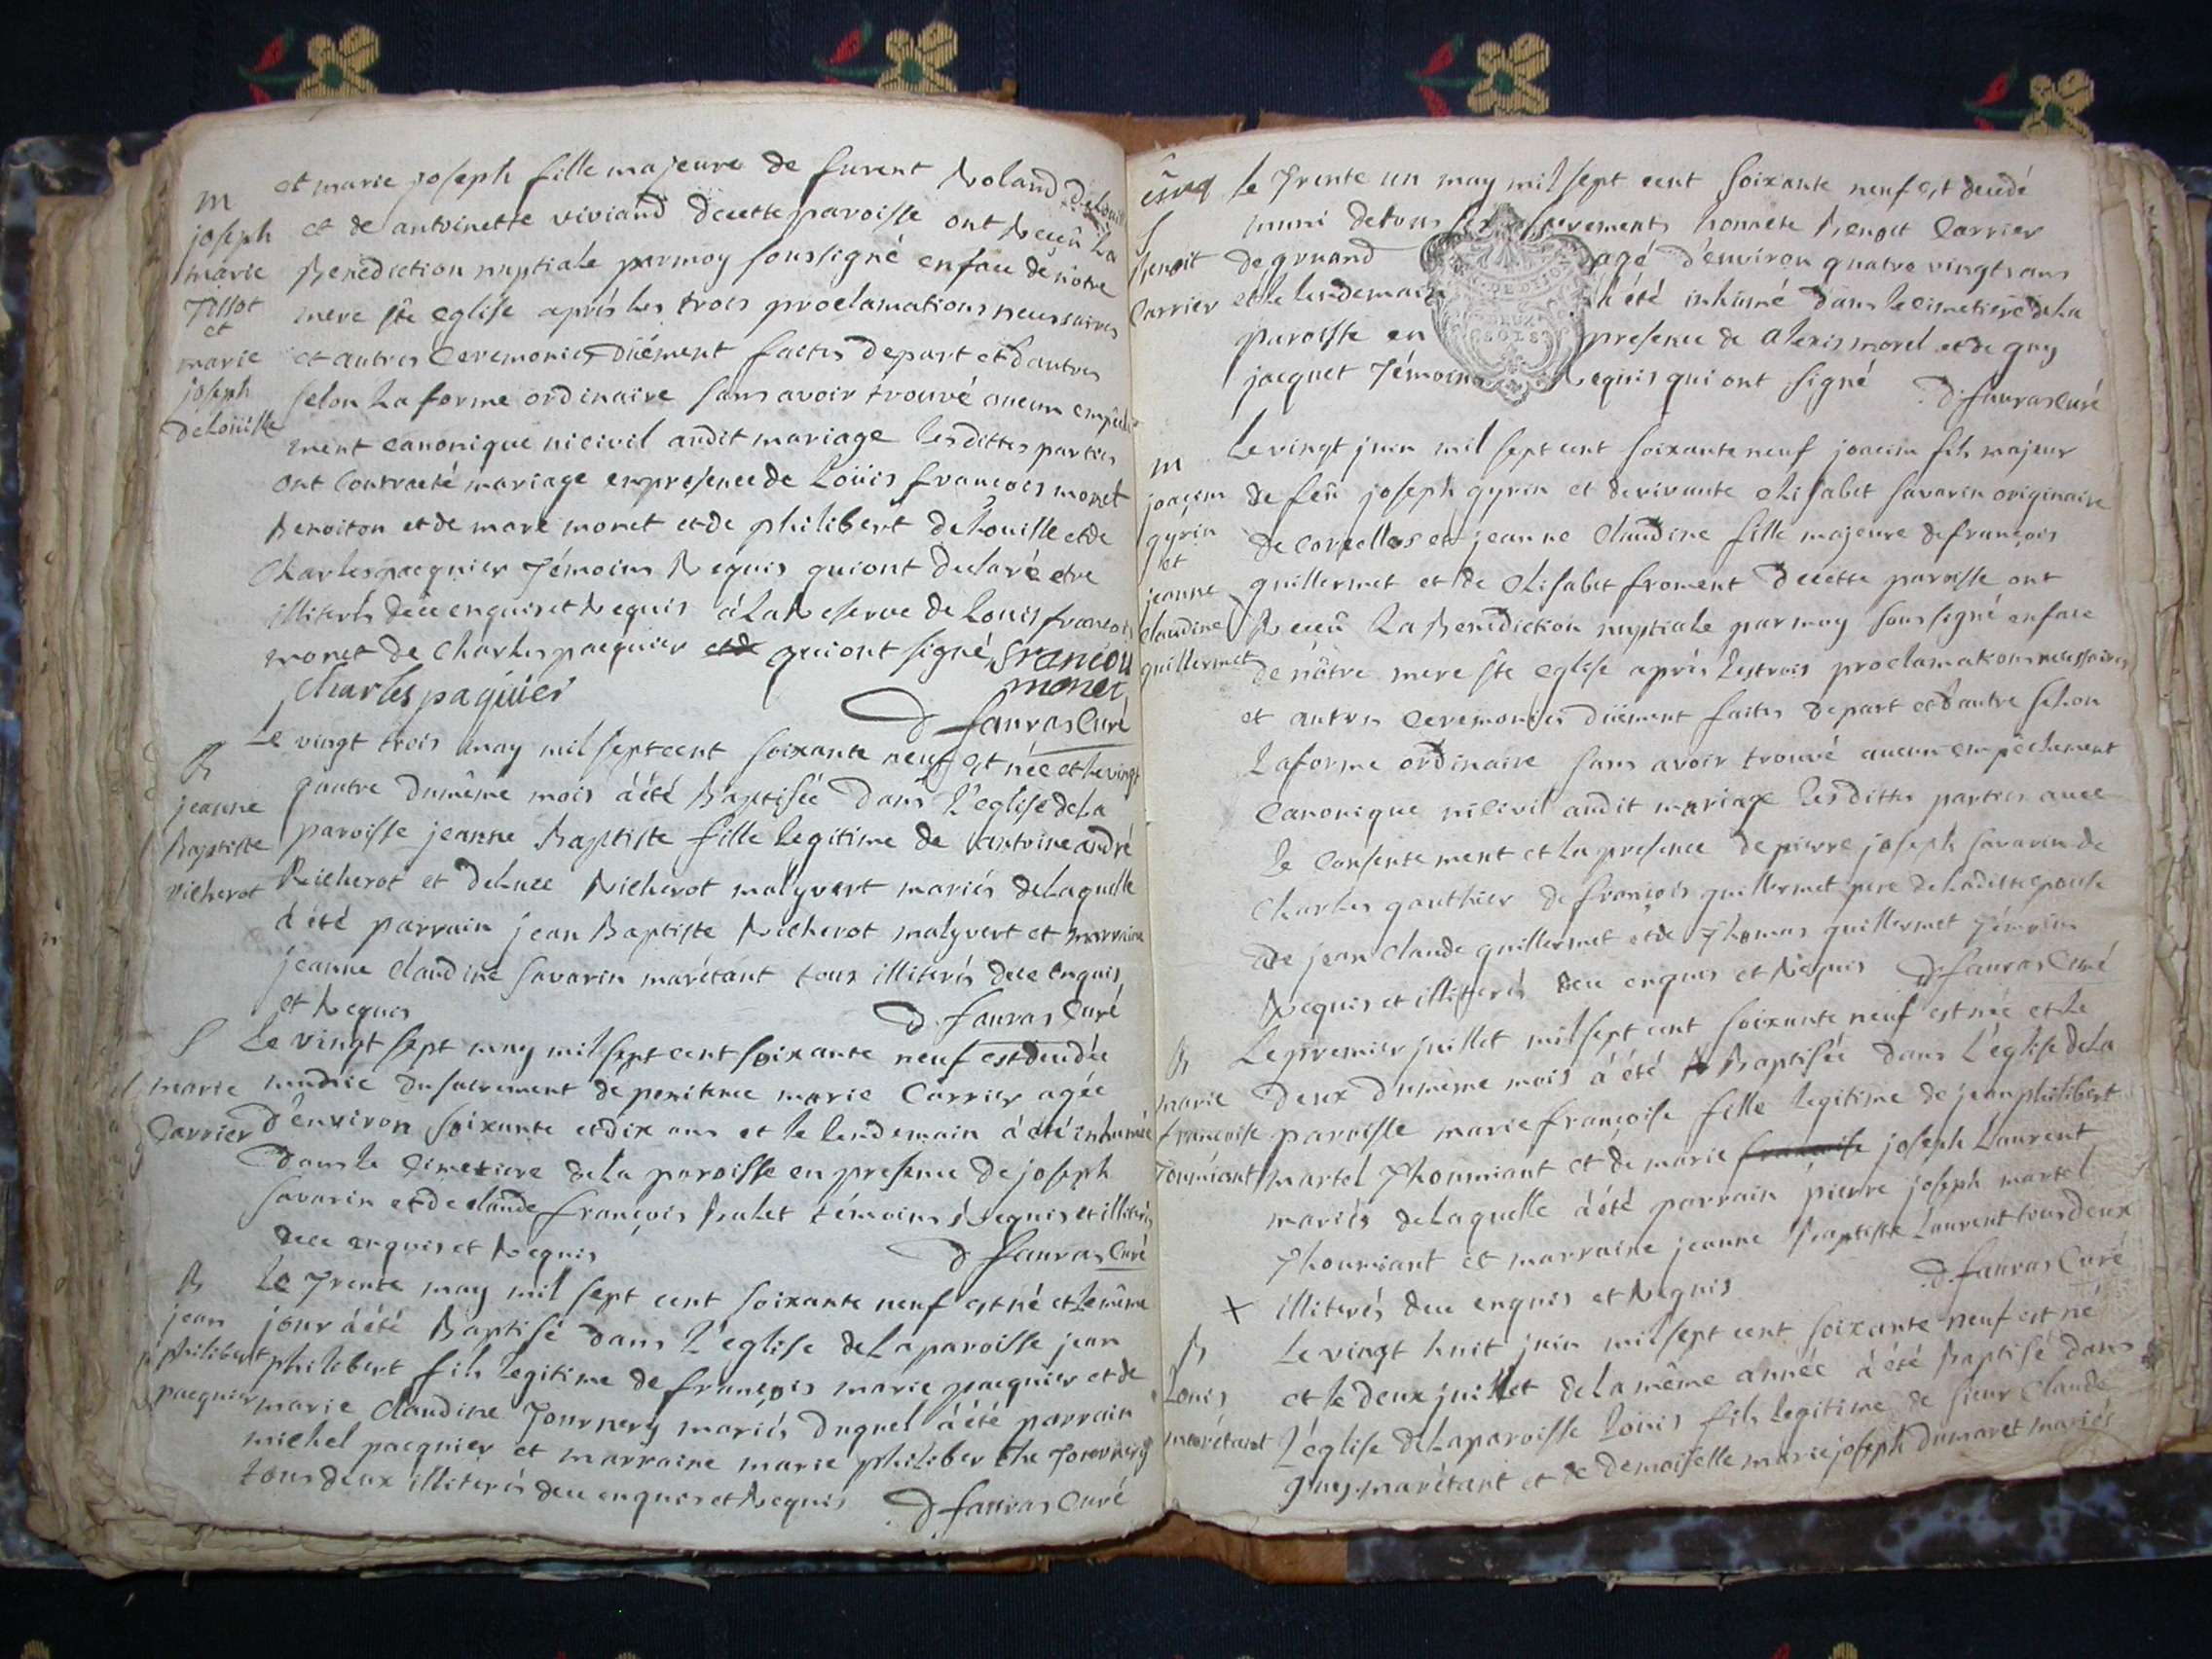 m
joseph
marie
Tissot
et
marie
joseph
deloüille
et marie joseph fille majeure de furent Roland delouille
et de antoinette viviand decette paroisse ont Reçeû La
Benediction nuptiale par moy soussigné enface de nôtre
mere ste eglise aprés les trois proclamations necessaires
et autres Ceremonies düément faites depart et dautres
selon La forme ordinaire sans avoir trouvé aucun empêche
ment canonique nicivil audit mariage lesdittes parties
ont Contracté mariage enpresence de Loüis françois monet
Benoiton et de marc monet et de philibert de Louille et de
Charles pacquier Témoins Requis qui ont declaré etre
illiterés dece enquis et Requis á La Reserve de Louis françois
monet de Charles pacquier qui ont signé francou
monet
charles paquier
D. fauras Curé
B
jeanne
Baptiste
richerot
Le vingt trois may mil septcent soixante neuf est née et le vingt
quatre dumême mois á été Baptisée dans L'eglise deLa
paroisse jeanne Baptiste fille legitime de antoine andré
Richerot et deLuce Richerot malyvert mariés de Laquelle
á été parrain jean Baptiste Richerot malyvert et marraine
jeanne claudine savarin marétant tous illiterés dece enquis
et Requis
D. fauras Curé
S
marie
Carrier
Le vingt sept may mil sept cent soixante neuf est decedée
munie du sacrement de penitence marie Carrier agée
d'environ soixante et dix ans et le lendemain á été inhumée
dans le cimetiere de la paroisse en presence de joseph
savarin et de claude françois Rulet témoins Requis et illiterés
dece enquis et Requis
D. fauras Curé
B
jean
philibert
pacquier
Le Trente may mil sept cent soixante neuf est né et le même
jour á été Baptisé dans L'eglise de La paroisse jean
philibert fils legitime de françois marie pacquier et de
marie claudine Tournery mariés duquel á été parrain
michel pacquier et marraine marie philiberthe Tournery
tous deux illiterés dece enquis et Requis
D. fauras Curé
S
Benoit
Carrier
le Trente un may mil sept cent soixante neuf est decedé
muni de tous les sacrements honnete Benoit Carrier
de grand agé d'environ quatre vingts ans
et le lendemain á été inhumé dans le cimetiere de La
paroisse en presence de alexis morel et de guy
jacquet Témoins Requis qui ont signé
D. fauras Curé
DE DIJON
DEUX
SOLS
m
joaçim
gyrin
et
jeanne
claudine
guillermet
Le vingt juin mil sept cent soixante neuf joacim fils majeur
de feû joseph gyrin et de vivante elisabet savarin originaire
de corcelles et jeanne claudine fille majeure de françois
guillermet et de elisabet froment decette paroisse ont
Reçeû La Benediction nuptiale par moy soussigné enface
de nôtre mere ste eglise aprés les trois proclamations necessaires
et autres Ceremonies düément faites depart et dautre selon
La forme ordinaire sans avoir trouvé aucun empêchement
Canonique nicivil audit mariage lesdittes parties avec
le Consentement et la presence de pierre joseph savarin de
Charles gauthier de françois guillermet pere de laditte epouse
de jean claude guillermet et de Thomas guillermet Témoins
Requis et illiterés dece enquis et Requis D. fauras Curé
B
marie
françoise
Toumiant
Le premier juillet mil sept cent soixante neuf est née et Le
deux dumême mois á été Baptisée dans L'église deLa
paroisse marie françoise fille legitime de jean philibert
martel Thoumiant et de marie françoise joseph Laurent
mariés de Laquelle á été parrain pierre joseph martel
Thoumiant et marraine jeanne Baptiste Laurent tous deux
illiterés dece enquis et Requis
D. fauras Curé
X
B
Louis
marétant
Le vingt huit juin mil sept cent soixante neuf est né
et le deux juillet de La même année á été Baptisé dans
L'église de La paroisse Loüis fils legitime de sieur Claude
guy marétant et de demoiselle marie joseph dumaret mariés